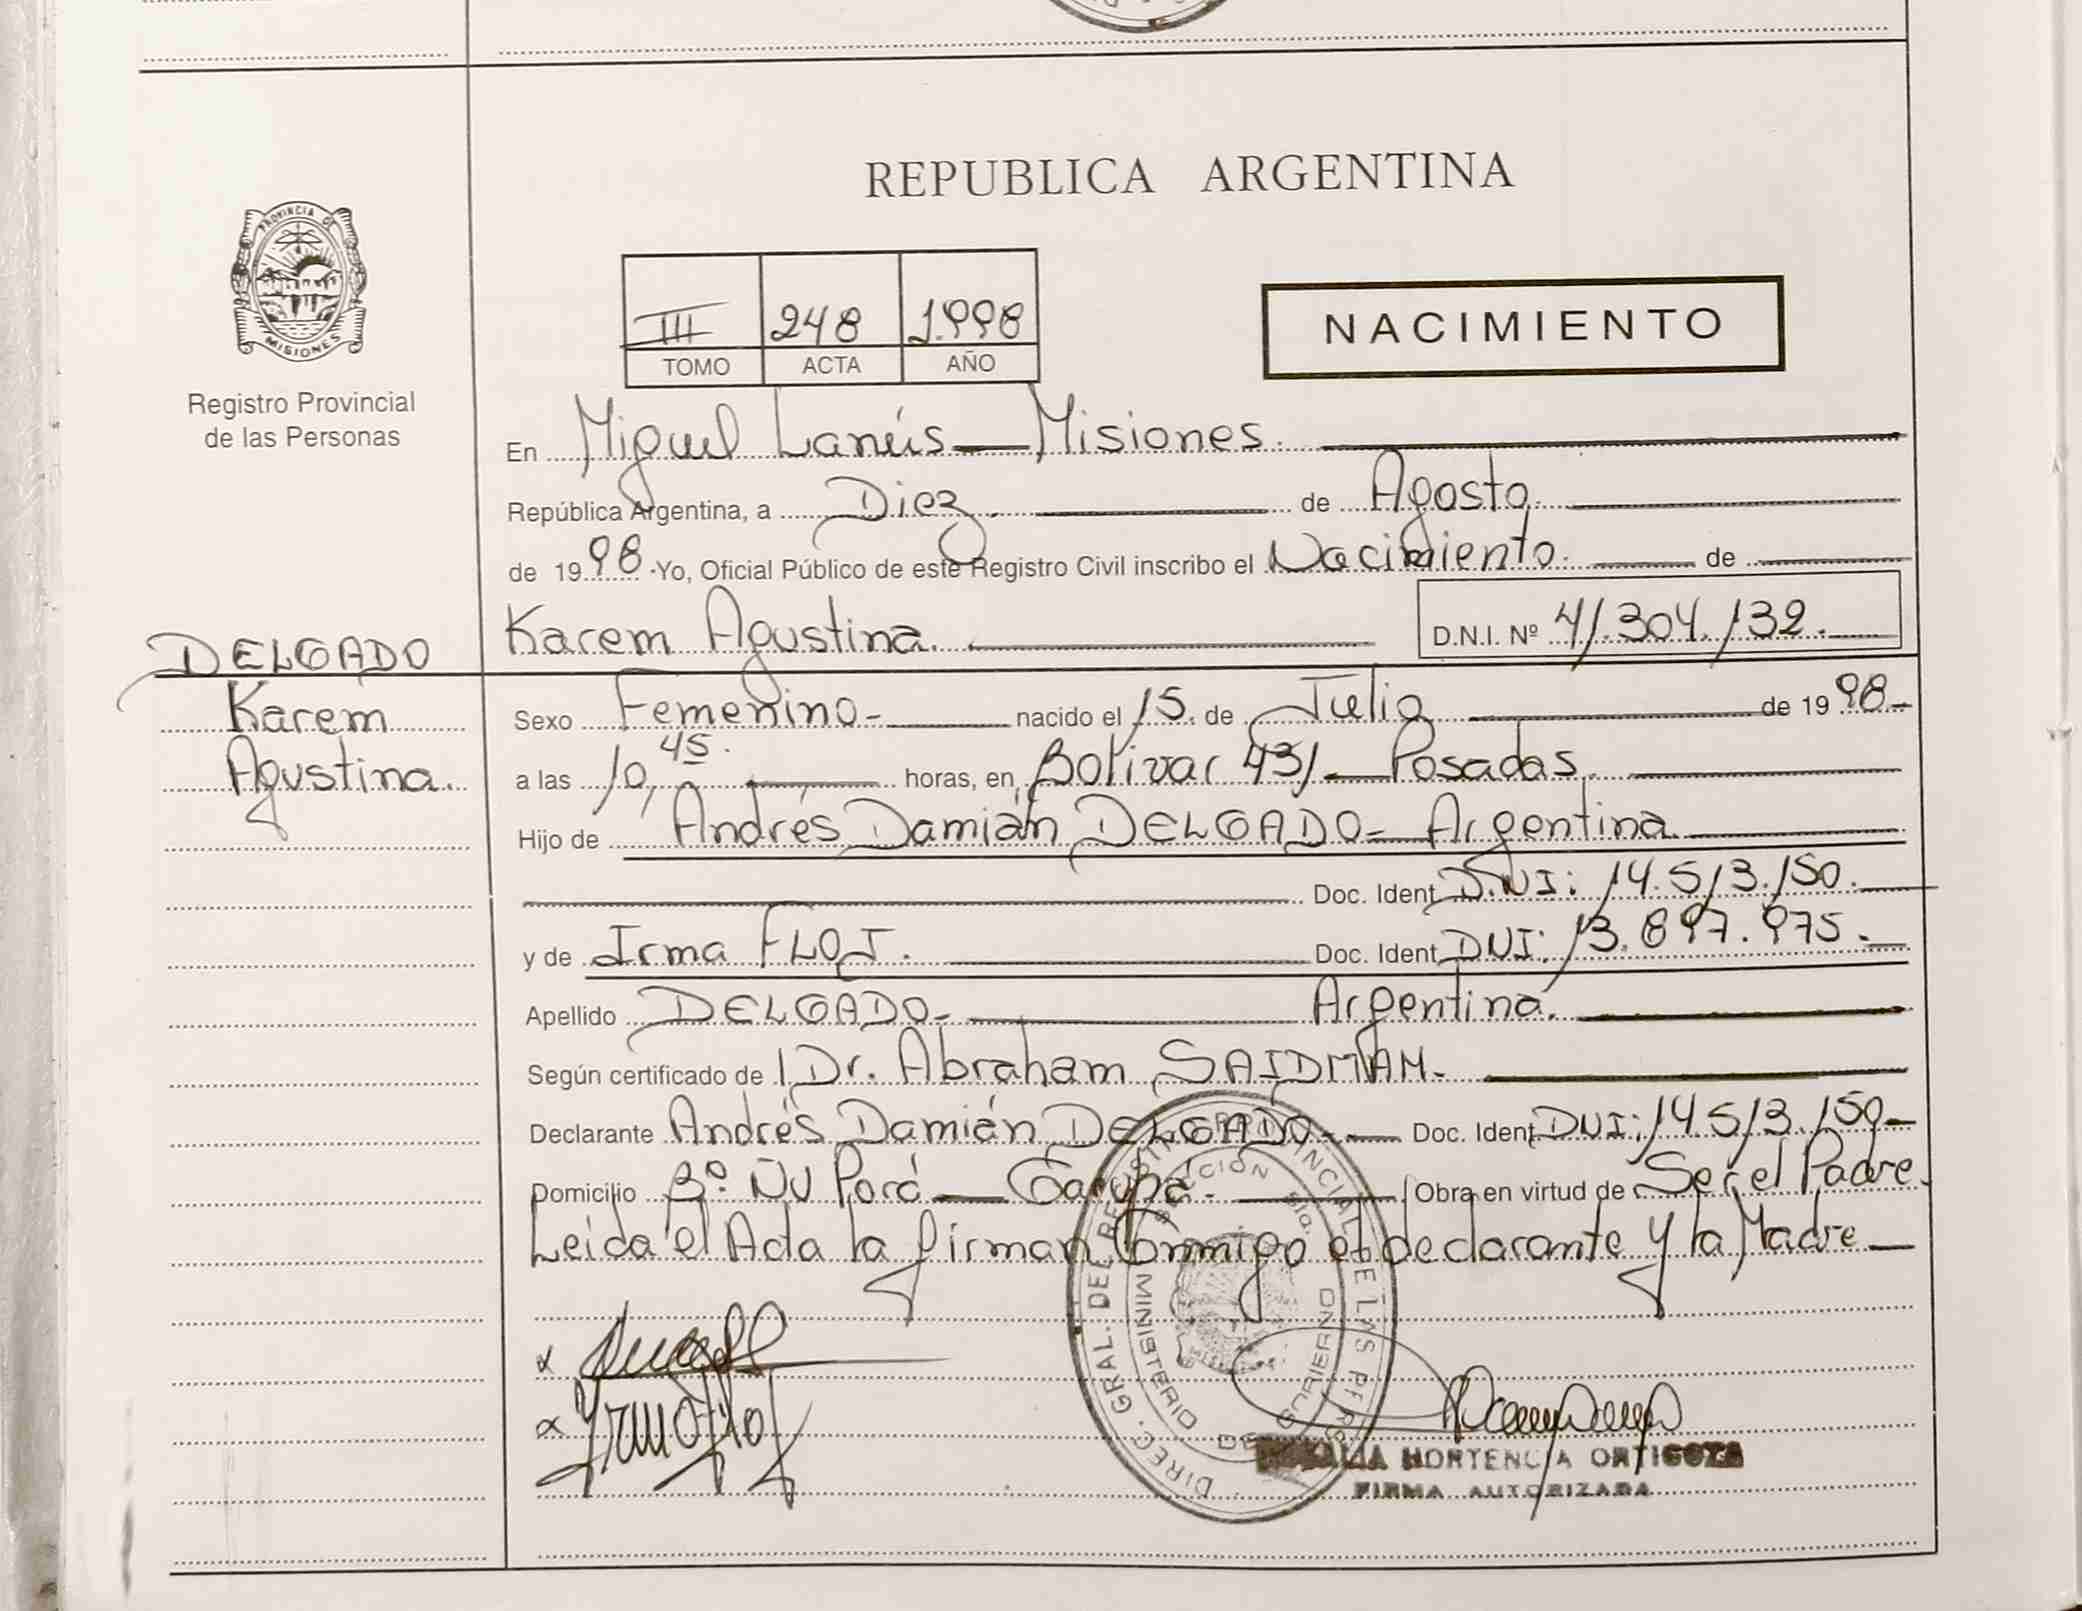 REPUBLICA ARGENTINA
PROVINCIA DE
MISIONES
Registro Provincial
de las Personas
III 248 1.998
TOMO ACTA AÑO
NACIMIENTO
En Miguel Lanús — Misiones.
República Argentina, a Diez. de Agosto.
de 1998 - Yo, Oficial Público de este Registro Civil inscribo el Nacimiento. de
Karem Agustina. D.N.I. Nº 41.304.132.
DELGADO
Karem
Agustina.
Sexo Femenino - nacido el 15. de Julio de 1998 -
a las 10,45. horas, en Bolivar 431 — Posadas.
Hijo de Andrés Damián DELGADO - Argentina.
Doc. Ident. D.N.I: 14.513.150.
y de Irma FLOJ. Doc. Ident. DNI: 13.897.975.
Apellido DELGADO - Argentina.
Según certificado de Dr. Abraham SAIDMAM.
Declarante Andrés Damián DELGADO - Doc. Ident. DNI: 14.513.150 -
Domicilio Bº. Ñu Porá — Garupá. Obra en virtud de Ser el Padre.
Leida el Acta la firman Conmigo el declarante y la Madre —
DIREC. GRAL. DEL REGISTRO PROVINCIAL DE LAS PERS
MINISTERIO DE GOBIERNO
HORTENCIA ORTIGOZA
FIRMA AUTORIZADA